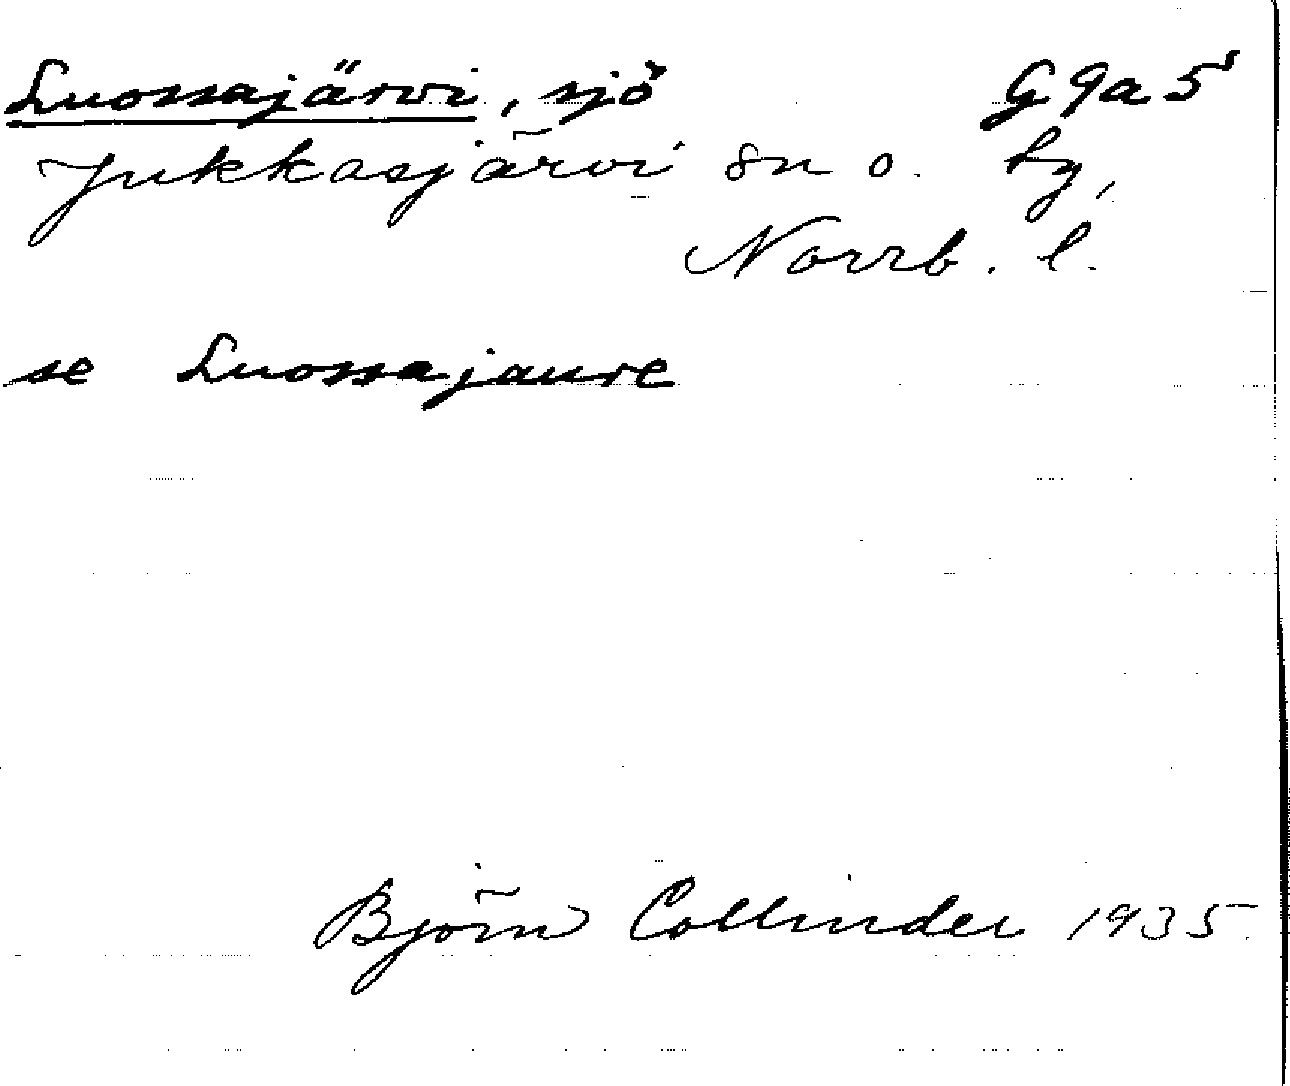 Luossajärvi, sjö G 9a 5
Jukkasjärvi sn o. tg,
Norrb. l.
se Luossajaure
Björn Collinder 1935.